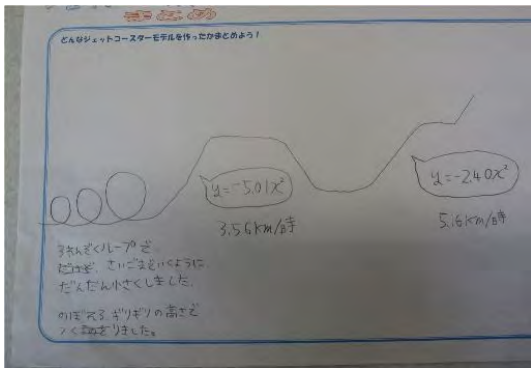 まとめ
どんなジェットコースターモデルを作ったかまとめよう！
y=-5.01x²
3.56km/時
y=-2.40x²
5.16km/時
3れんぞくループで
だけど、さいごまでいくように
だんだん小さくしました。
のぼれるギリギリの高さで
つくりました。